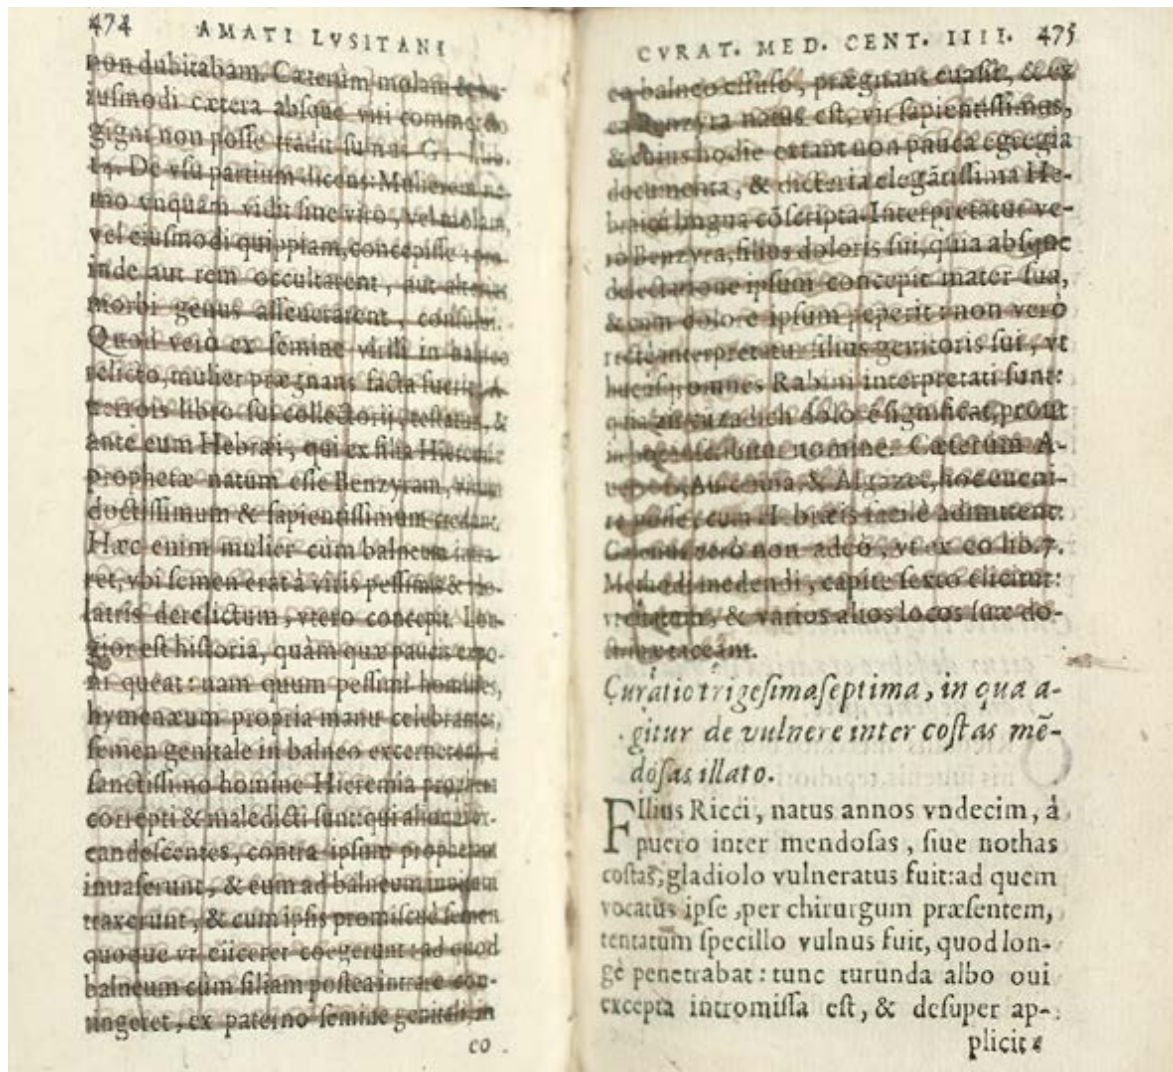 474 AMATI LVSITANI
non dubitabam. Cæterùm molam & hu-
iusmodi cætera absque viri commertio
gigni non posse tradit summus G. lib.
14. De vsu partium dicens: Mulierem ne-
mo vnquam vidit sine viro, vel molam,
vel eiusmodi quippiam, concepisse: pro-
inde aut rem occultarent, aut alterius
morbi genus asseuerarent, consului.
Quod verò ex semine virili in balneo
relicto, mulier prægnans facta fuerit, A-
uerrois libro sui collectorij, testatus, &
antè eum Hebræi, qui ex filia Hieremiæ
prophetæ natum esse Benzyram, virum
doctissimum & sapientissimum credant.
Hæc enim mulier cùm balneum intra-
ret, vbi semen erat à viris pessimis & ido-
latris derelictum, vtero concepit. Lon-
gior est historia, quàm quæ paucis expo-
ni queat: nam quum pessimi homines,
hymenæum propria manu celebrantes,
semen genitale in balneo excernerent, à
sanctissimo homine Hieremia propheta
correpti & maledicti sunt: qui
candescentes, contra ipsum prophetam
inuaserunt, & eum ad balneum inuitum
traxerunt, & cum ipsis promiscuè semen
quoque vt eiiceret coegerunt: ad quod
balneum cùm filiam postea intrare con-
tingeret, ex paterno semine genitali, in
co
CVRAT. MED. CENT. IIII. 475
eo balneo effuso, prægnans euasit, & ex
ea Benzyra natus est, vir sapientissimus,
& cuius hodie extant non pauca egregia
documenta, & dicteria elegātissima He-
braica lingua cōscripta. Interpretatur ve-
rò Benzyra, filius doloris sui, quia absque
delectatione ipsum concepit mater sua,
& cum dolore ipsum peperit: non verò
rectè interpretatur filius genitoris sui, vt
hucusq; omnes Rabini interpretati sunt:
quia dolorē significat, prout
in nomine. Cæterùm A-
uerrois, Auicenna, & Algazel, hoc eueni-
re posse, cum Hebræis facilè admittent:
Galenus verò non adeò, vt ex eo lib. 7.
Methodi medendi, capite sexto elicitur:
& varios alios locos suæ do-
ctrinæ taceam.
Curatio trigesimaseptima, in qua a-
gitur de vulnere inter costas mē-
dosas illato.
FIlius Ricci, natus annos vndecim, à
puero inter mendosas, siue nothas
costas, gladiolo vulneratus fuit: ad quem
vocatus ipse, per chirurgum præsentem,
tentatum specillo vulnus fuit, quod lon-
gè penetrabat: tunc turunda albo oui
excepta intromissa est, & desuper ap-
plicit